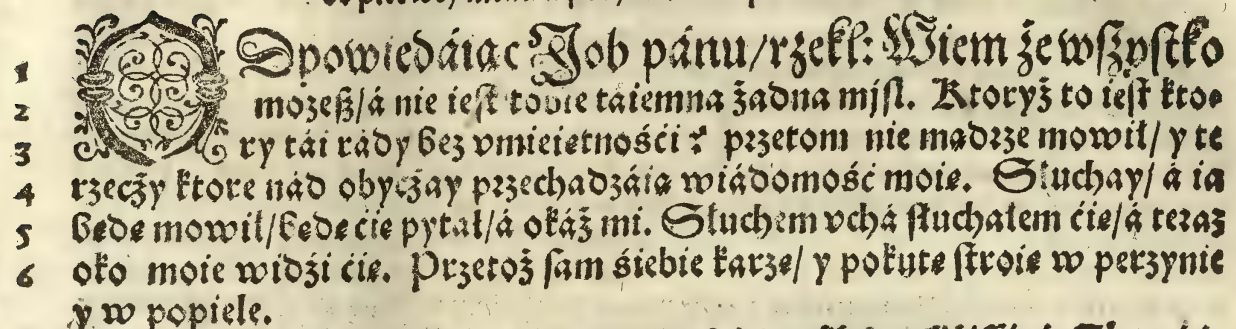 ODpowiedáiąc Job pánu/rzekł: Wiem że wſzyſtko
1
możeß/á nie ieſt tobie táiemna żadna myſl. Ktoryż to ieſt kto⸗
2
ry tái rády bez vmieiętnośći? przetom nie mądrze mowił/ y te
3
rzeczy ktore nád obyczay przechadzáią wiádomość moię. Słuchay/ á ia
4
będę mowił/będę cię pytał/á okáż mi. Słuchem vchá ſłuchałem ćię/á teraz
5
oko moie widźi ćię. Przetoż ſam śiebie karzę/ y pokutę ſtroię w perzynie
6
y w popiele.